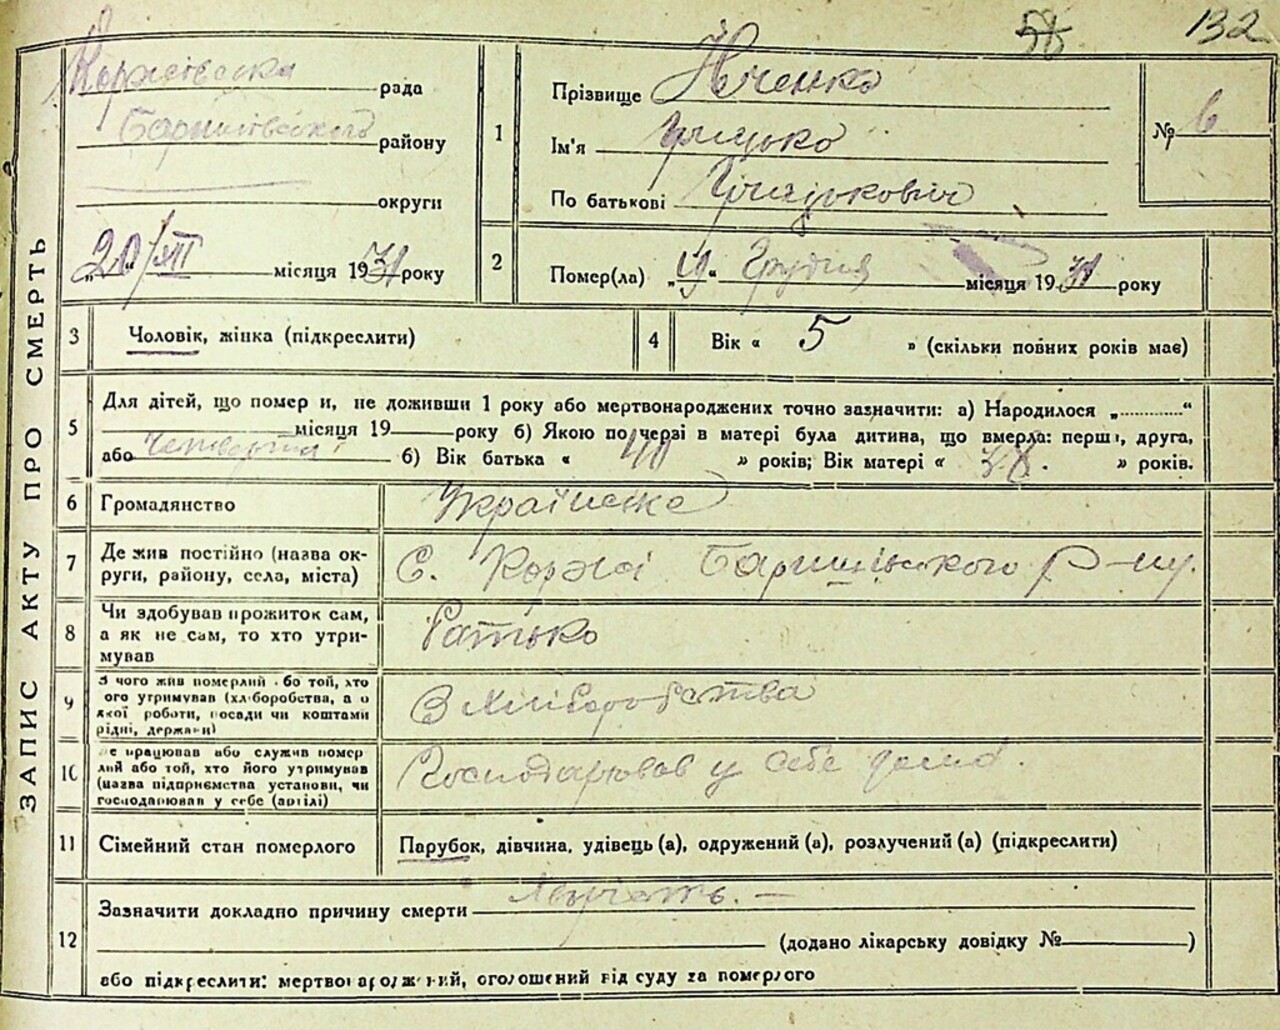 58 132
ЗАПИС АКТУ ПРО СМЕРТЬ
Коржівська рада
Баришівського району
округи
„20“/XII місяця 1931 року
1
Прізвище Ївченко
Ім'я Грицько
По батькові Грицькович
№ 6
2
Помер(ла) „19“ Грудня місяця 1931 року
3 Чоловік, жінка (підкреслити)
4 Вік « 5 » (скільки повних років має)
5
Для дітей, що померли, не доживши 1 року або мертвонароджених точно зазначити: а) Народилося „ “
місяця 19 року б) Якою по черзі в матері була дитина, що вмерла: перша, друга,
або четверта б) Вік батька « 40 » років; Вік матері « 38. » років.
6 Громадянство Українське
7 Де жив постійно (назва ок-
руги, району, села, міста)
С. Коржі Баришівського р-ну.
8 Чи здобував прожиток сам,
а як не сам, то хто утри-
мував
Батько
9 З чого жив померлий або той, хто
його утримував (хліборобства, або
якої роботи, посади чи коштами
рідні, держави)
З хліборобства
10 Де працював або служив помер
лий або той, хто його утримував
(назва підприємства установи, чи
господарював у себе (артілі)
Господарював у себе дома.
11 Сімейний стан померлого Парубок, дівчина, удівець (а), одружений (а), розлучений (а) (підкреслити)
12
Зазначити докладно причину смерти
(додано лікарську довідку № )
або підкреслити: мертвонароджений, оголошений від суду за померлого